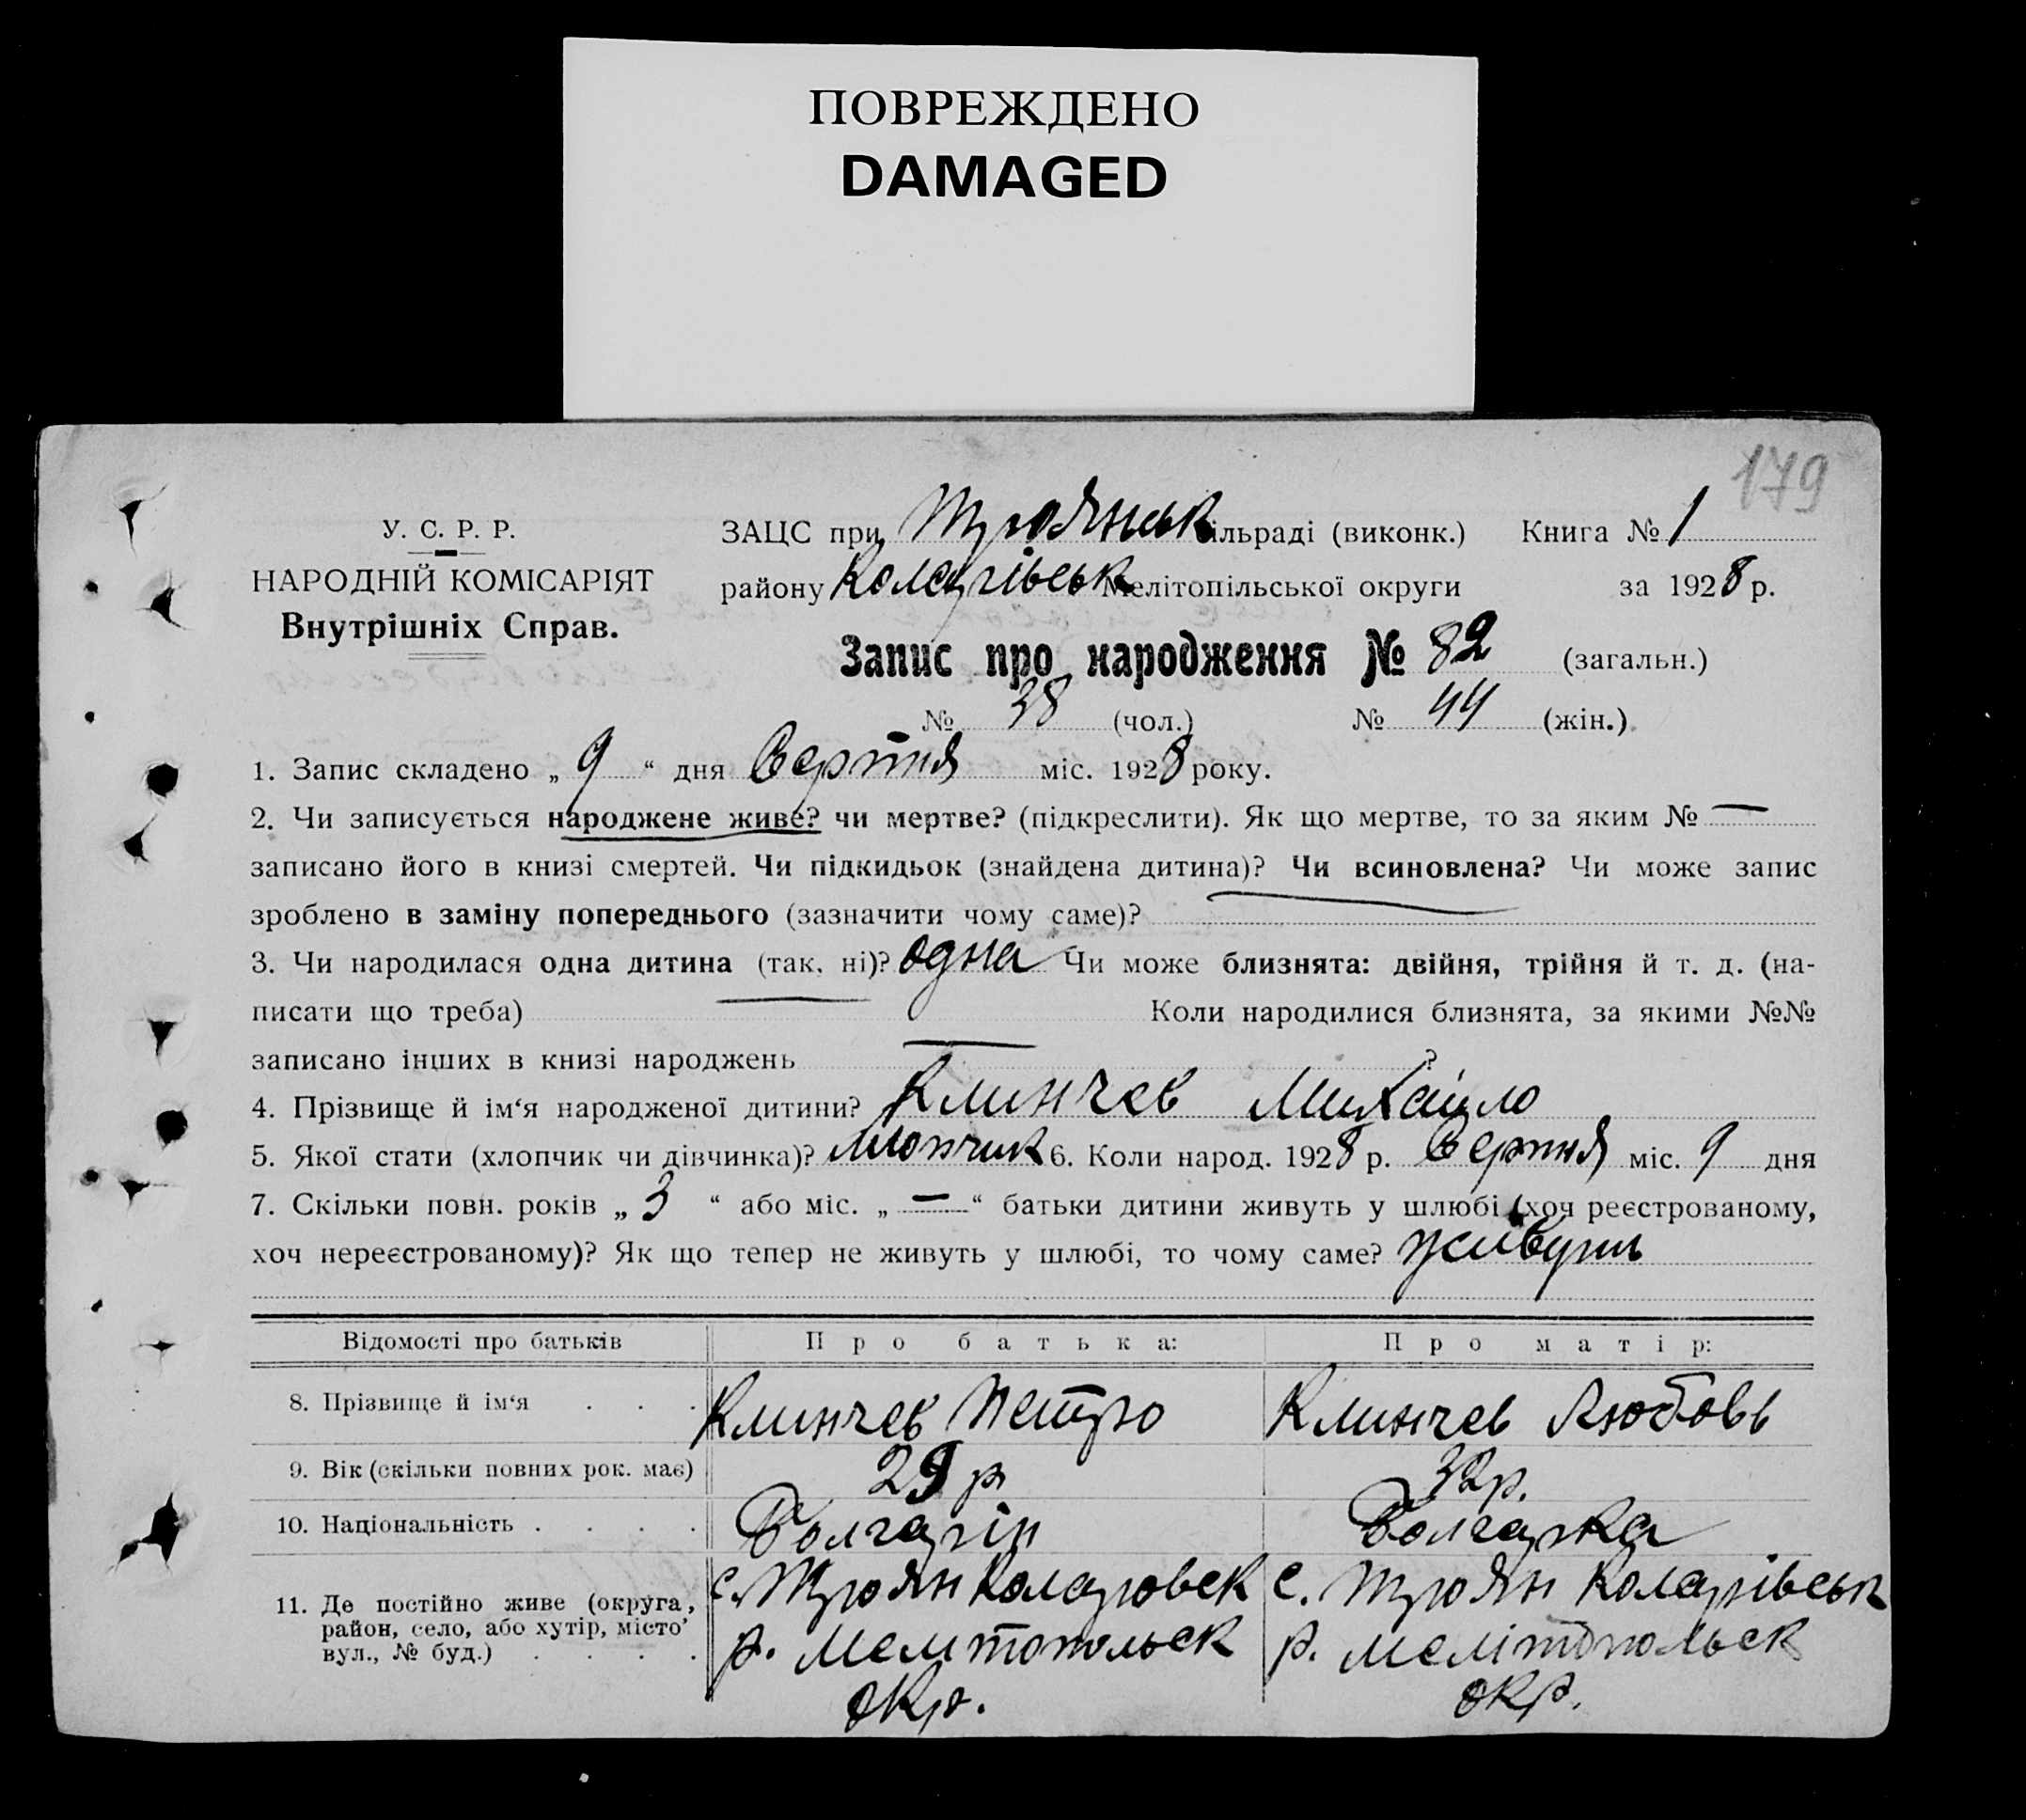 ПОВРЕЖДЕНО
DAMAGED
179
У. С. Р. Р.
НАРОДНІЙ КОМІСАРІЯТ
Внутрішніх Справ.
ЗАЦС при Троянськ ільраді (виконк.) Книга № 1
району Коларівськ Мелітопільської округи за 1928 р.
Запис про народження № 82 (загальн.)
№ 38 (чол.) № 44 (жін.)
1. Запис складено „ 9 “ дня Серпня міс. 1928 року.
2. Чи записується народжене живе? чи мертве? (підкреслити). Як що мертве, то за яким № —
записано його в книзі смертей. Чи підкидьок (знайдена дитина)? Чи всиновлена? Чи може запис
зроблено в заміну попереднього (зазначити чому саме)?
3. Чи народилася одна дитина (так, ні)? одна Чи може близнята: двійня, трійня й т. д. (на-
писати що треба) — Коли народилися близнята, за якими №№
записано інших в книзі народжень — ?
4. Прізвище й ім‘я народженої дитини? Клинчев Михайло
5. Якої стати (хлопчик чи дівчинка)? хлопчик 6. Коли народ. 1928 р. Серпня міс. 9 дня
7. Скільки повн. років „ 3 “ або міс. „ — “ батьки дитини живуть у шлюбі (хоч реєстрованому,
хоч нереєстрованому)? Як що тепер не живуть у шлюбі, то чому саме? живуть
Відомості про батьків Про батька: Про матір:
8. Прізвище й ім‘я . . . Клинчев Петро Клинчев Любовь
9. Вік (скільки повних рок. має) 29 р 32 р.
10. Національність . . . . Болгарін Болгарка
11. Де постійно живе (округа, район, село, або хутір, місто’ вул., № буд.) . . . .
с. Троян Коларовск
р. Мелитопольск
окр.
с. Троян Коларівськ
р. Мелітопольск
окр.